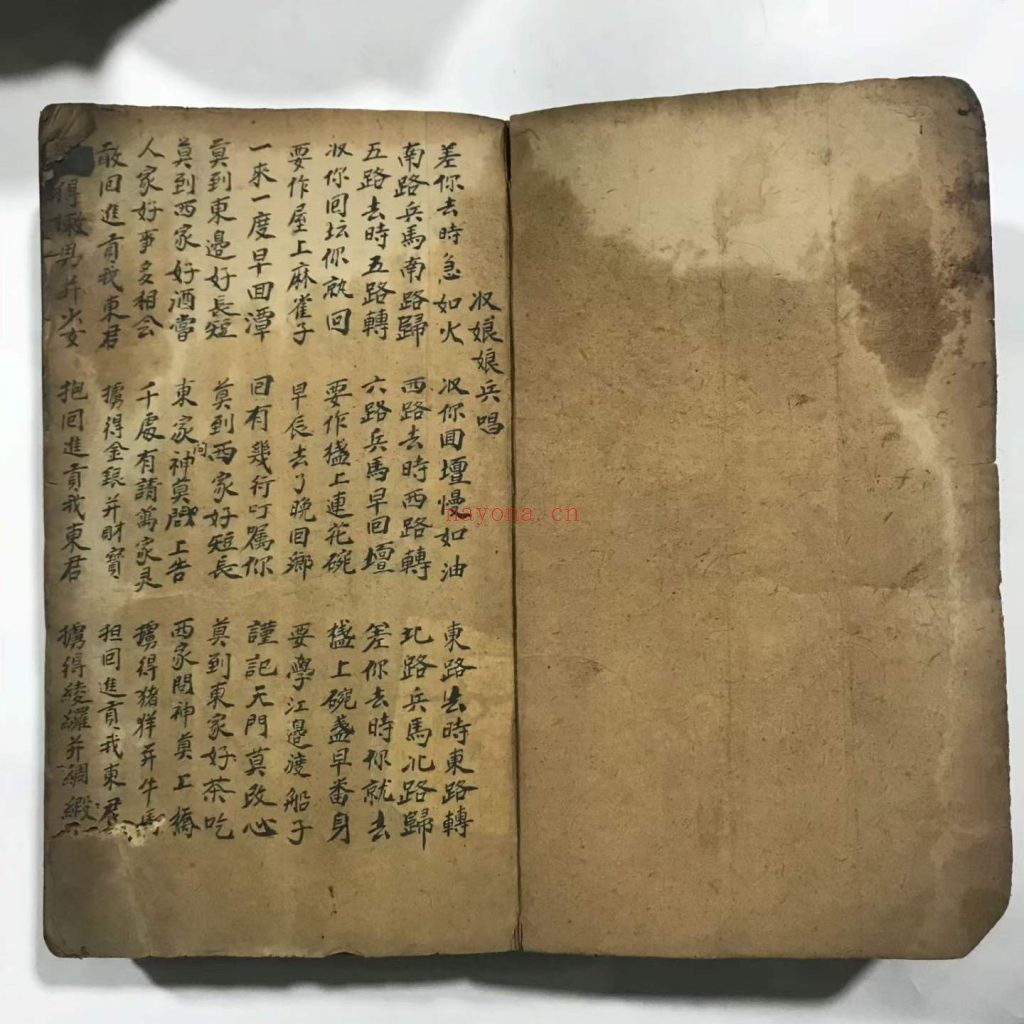 収娘娘兵唱
差你去時急如火 収你囬壇慢如油 東路去時東路轉
南路兵馬南路歸 西路去時西路轉 北路兵馬北路歸
五路去時五路轉 六路兵馬早回壇 差你去時你就去
収你回坛你就回 要作上連花碗 上碗盞早番身
要作屋上麻雀子 早辰去了晚回鄉 要學江邊渡船子
一來一度早回潭 回有幾行叮嘱你 謹記天門莫改心
莫到東邊好長短 莫到西家好短長 莫到東家好茶吃
莫到西家好酒嘗 東家問神莫上告 西家問神莫上
人家好事多相会 千處有請萬家灵 擄得猪羊并牛馬
敢回進貢我東君 擄得金銀并財寶 担回進貢我東君
得男并少女 抱回進貢我東君 擄得綾羅并綢緞
nayona.cn